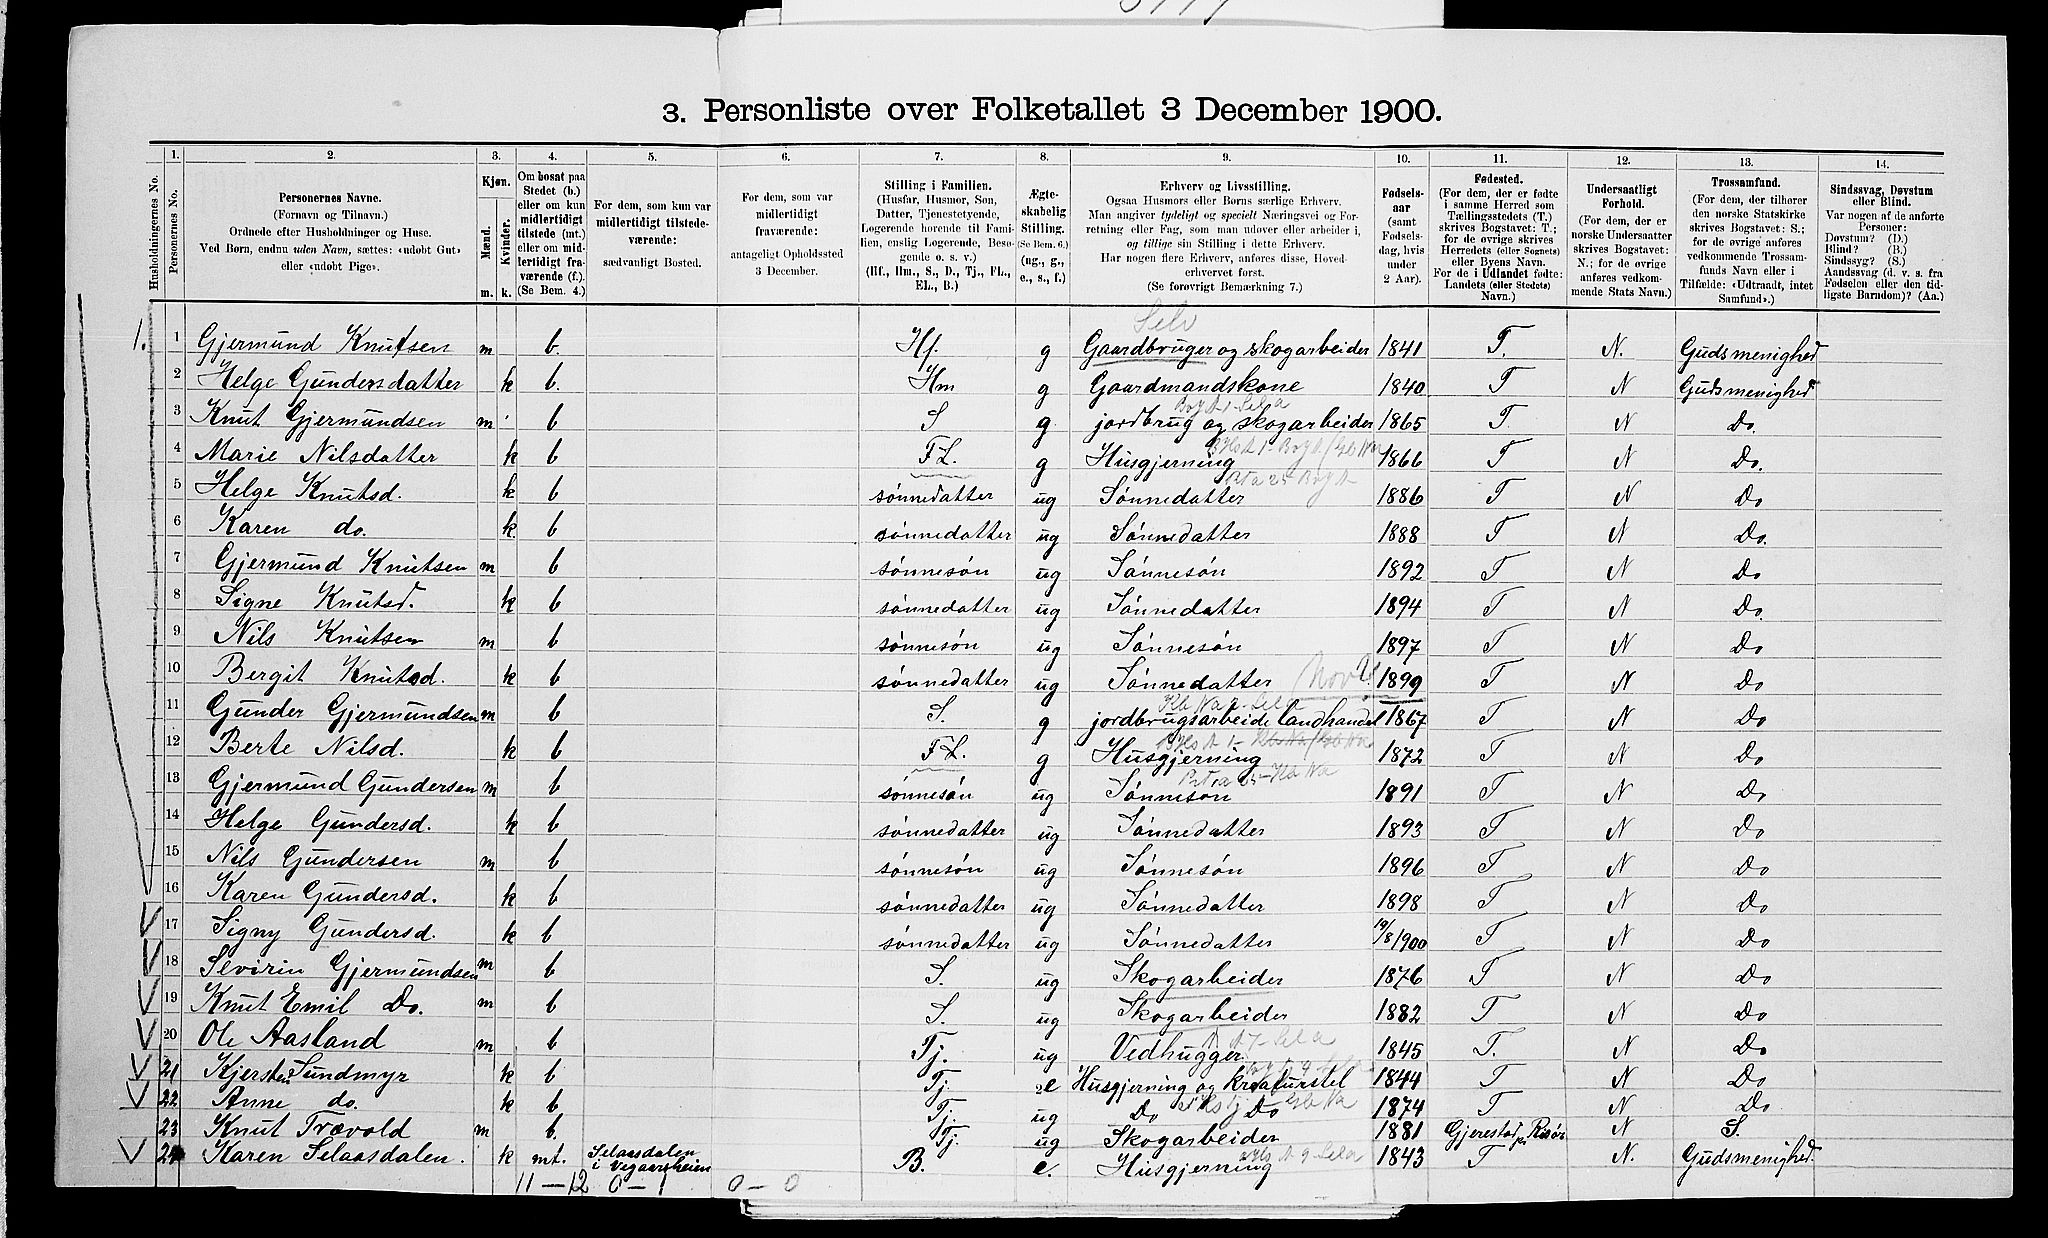 3. Personliste over Folketallet 3 December 1900.
1. 2. 3. 4. 5. 6. 7. 8. 9. 10. 11. 12. 13. 14.
Husholdningernes No.
Personernes No.
Personernes Navne.
(Fornavn og Tilnavn.)
Ordnede efter Husholdninger og Huse.
Ved Børn, endnu uden Navn, sættes: «udøbt Gut»
eller «udøbt Pige».
Kjøn.
Mænd.
Kvinder.
m. k.
Om bosat paa
Stedet (b.)
eller om kun
midlertidigt
tilstede (mt.)
eller om mid-
lertidigt fra-
værende (f.).
(Se Bem. 4.)
For dem, som kun var
midlertidigt tilstede-
værende:
sædvanligt Bosted.
For dem, som var
midlertidigt
fraværende:
antageligt Opholdssted
3 December.
Stilling i Familien.
(Husfar, Husmor, Søn,
Datter, Tjenestetyende,
Logerende hørende til Fami-
lien, enslig Logerende, Besø-
gende o. s. v.)
(Hf., Hm., S., D., Tj., FL.,
EL., B.)
Ægte-
skabelig
Stilling.
(Se Bem. 6.)
(ug., g.,
e., s., f.)
Erhverv og Livsstilling.
Ogsaa Husmors eller Børns særlige Erhverv.
Man angiver tydeligt og specielt Næringsvei og For-
retning eller Fag, som man udøver eller arbeider i,
og tillige sin Stilling i dette Erhverv.
Har nogen flere Erhverv, anføres disse, Hoved-
erhvervet først.
(Se forøvrigt Bemærkning 7.)
Fødsels-
aar
(samt
Fødsels-
dag, hvis
under
2 Aar).
Fødested.
(For dem, der er fødte
i samme Herred som
Tællingsstedets (T.)
skrives Bogstavet: T.;
for de øvrige skrives
Herredets (eller Sognets)
eller Byens Navn.
For de i Udlandet fødte:
Landets (eller Stedets)
Navn.)
Undersaatligt
Forhold.
(For dem, der er
norske Undersaatter
skrives Bogstavet:
N.; for de øvrige
anføres vedkom-
mende Stats Navn.)
Trossamfund.
(For dem, der tilhører
den norske Statskirke
skrives Bogstavet: S.;
for de øvrige anføres
vedkommende Trossam-
funds Navn eller i
Tilfælde: «Udtraadt, intet
Samfund».)
Sindssvag, Døvstum
eller Blind.
Var nogen af de anførte
Personer:
Døvstum? (D.)
Blind? (B.)
Sindssyg? (S.)
Aandssvag (d. v. s. fra
Fødselen eller den tid-
ligste Barndom)? (Aa.)
Selv
1. 1 Gjermund Knutsen m b. Hf. g Gaardbruger og skogarbeider 1841 T. N. Gudsmenighed
2 Helge Gundersdatter k b. Hm g Gaardmandskone 1840 T N Gudsmenighed
3 Knut Gjermundsen m b S g jordbrug og skogarbeider 1865 T N Do.
4 Marie Nilsdatter k b FL. g Husgjerning 1866 T N Do.
5 Helge Knutsd. k b sønnedatter ug Sønnedatter 1886 T N Do
6 Karen do. k b sønnedatter ug Sønnedatter 1888 T N Do.
7 Gjermund Knutsen m b sønnesøn ug Sønnesøn 1892 T N Do
8 Signe Knutsd. k b sønnedatter ug Sønnedatter 1894 T N Do
9 Nils Knutsen m b sønnesøn ug Sønnesøn 1897 T N Do
10 Bergit Knutsd. k b sønnedatter ug Sønnedatter 1899 T N Do
11 Gunder Gjermundsen m b S. g jordbrugsarbeide landhandel 1867 T N Do
12 Berte Nilsd. k b FL. g Husgjerning 1872 T N Do
13 Gjermund Gundersen m b sønnesøn ug Sønnesøn 1891 T N Do
14 Helge Gundersd. k b sønnedatter ug Sønnedatter 1893 T N Do
15 Nils Gundersen m b sønnesøn ug Sønnesøn 1896 T N Do
16 Karen Gundersd. k b sønnedatter ug Sønnedatter 1898 T N Do
17 Signy Gundersd. k b sønnedatter ug Sønnedatter 19/8 1900 T N Do
18 Sevirin Gjermundsen m b S. ug Skogarbeider 1876 T N Do
19 Knut Emil Do. m b S. ug Skogarbeider 1882 T N Do
20 Ole Aasland m b Tj. ug Vedhugger 1845 T. N Do
21 Kjersten Sundmyr k b Tj. e Husgjerning og kreaturstel 1844 T N Do
22 Anne do. k b Tj. ug Do Do 1874 T N Do
23 Knut Trævold m b. Tj. ug Skogarbeider 1881 Gjerestad pr Risør N S.
24 Karen Selaasdalen. k mt. Selaasdalen B. e. Husgjerning 1843 T N. Gudsmenighed.
i Vegaarsheien
11 — 12 0 — 1 0 — 0